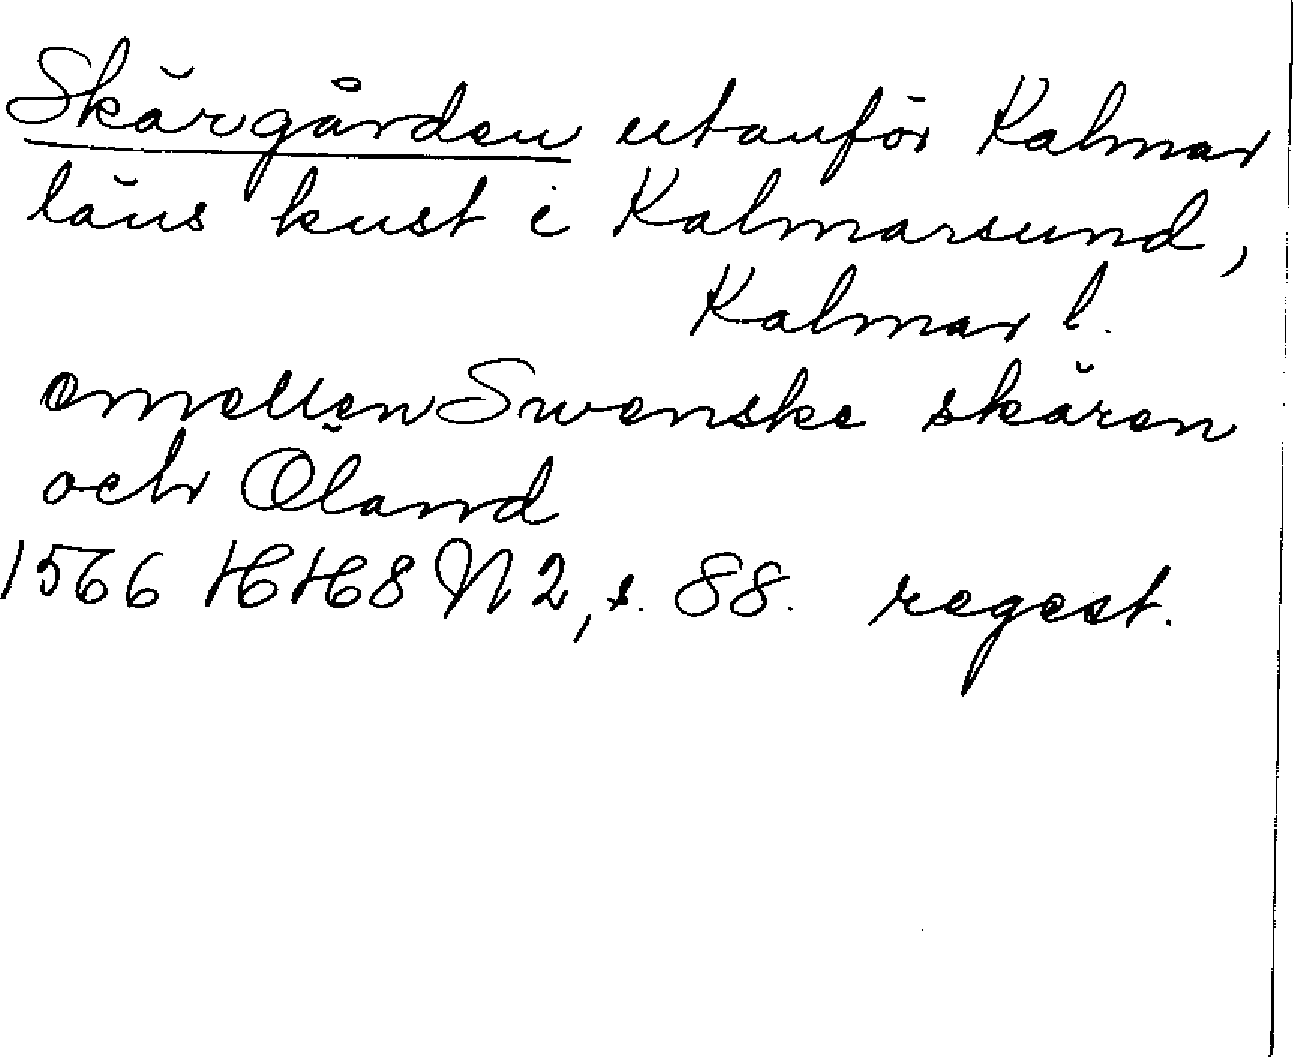 Skärgården utanför Kalmar
läns kust i Kalmarsund,
Kalmar l.
emellen Swenske skären
och Öland
1566 HH 8 N 2, s. 88. regest.